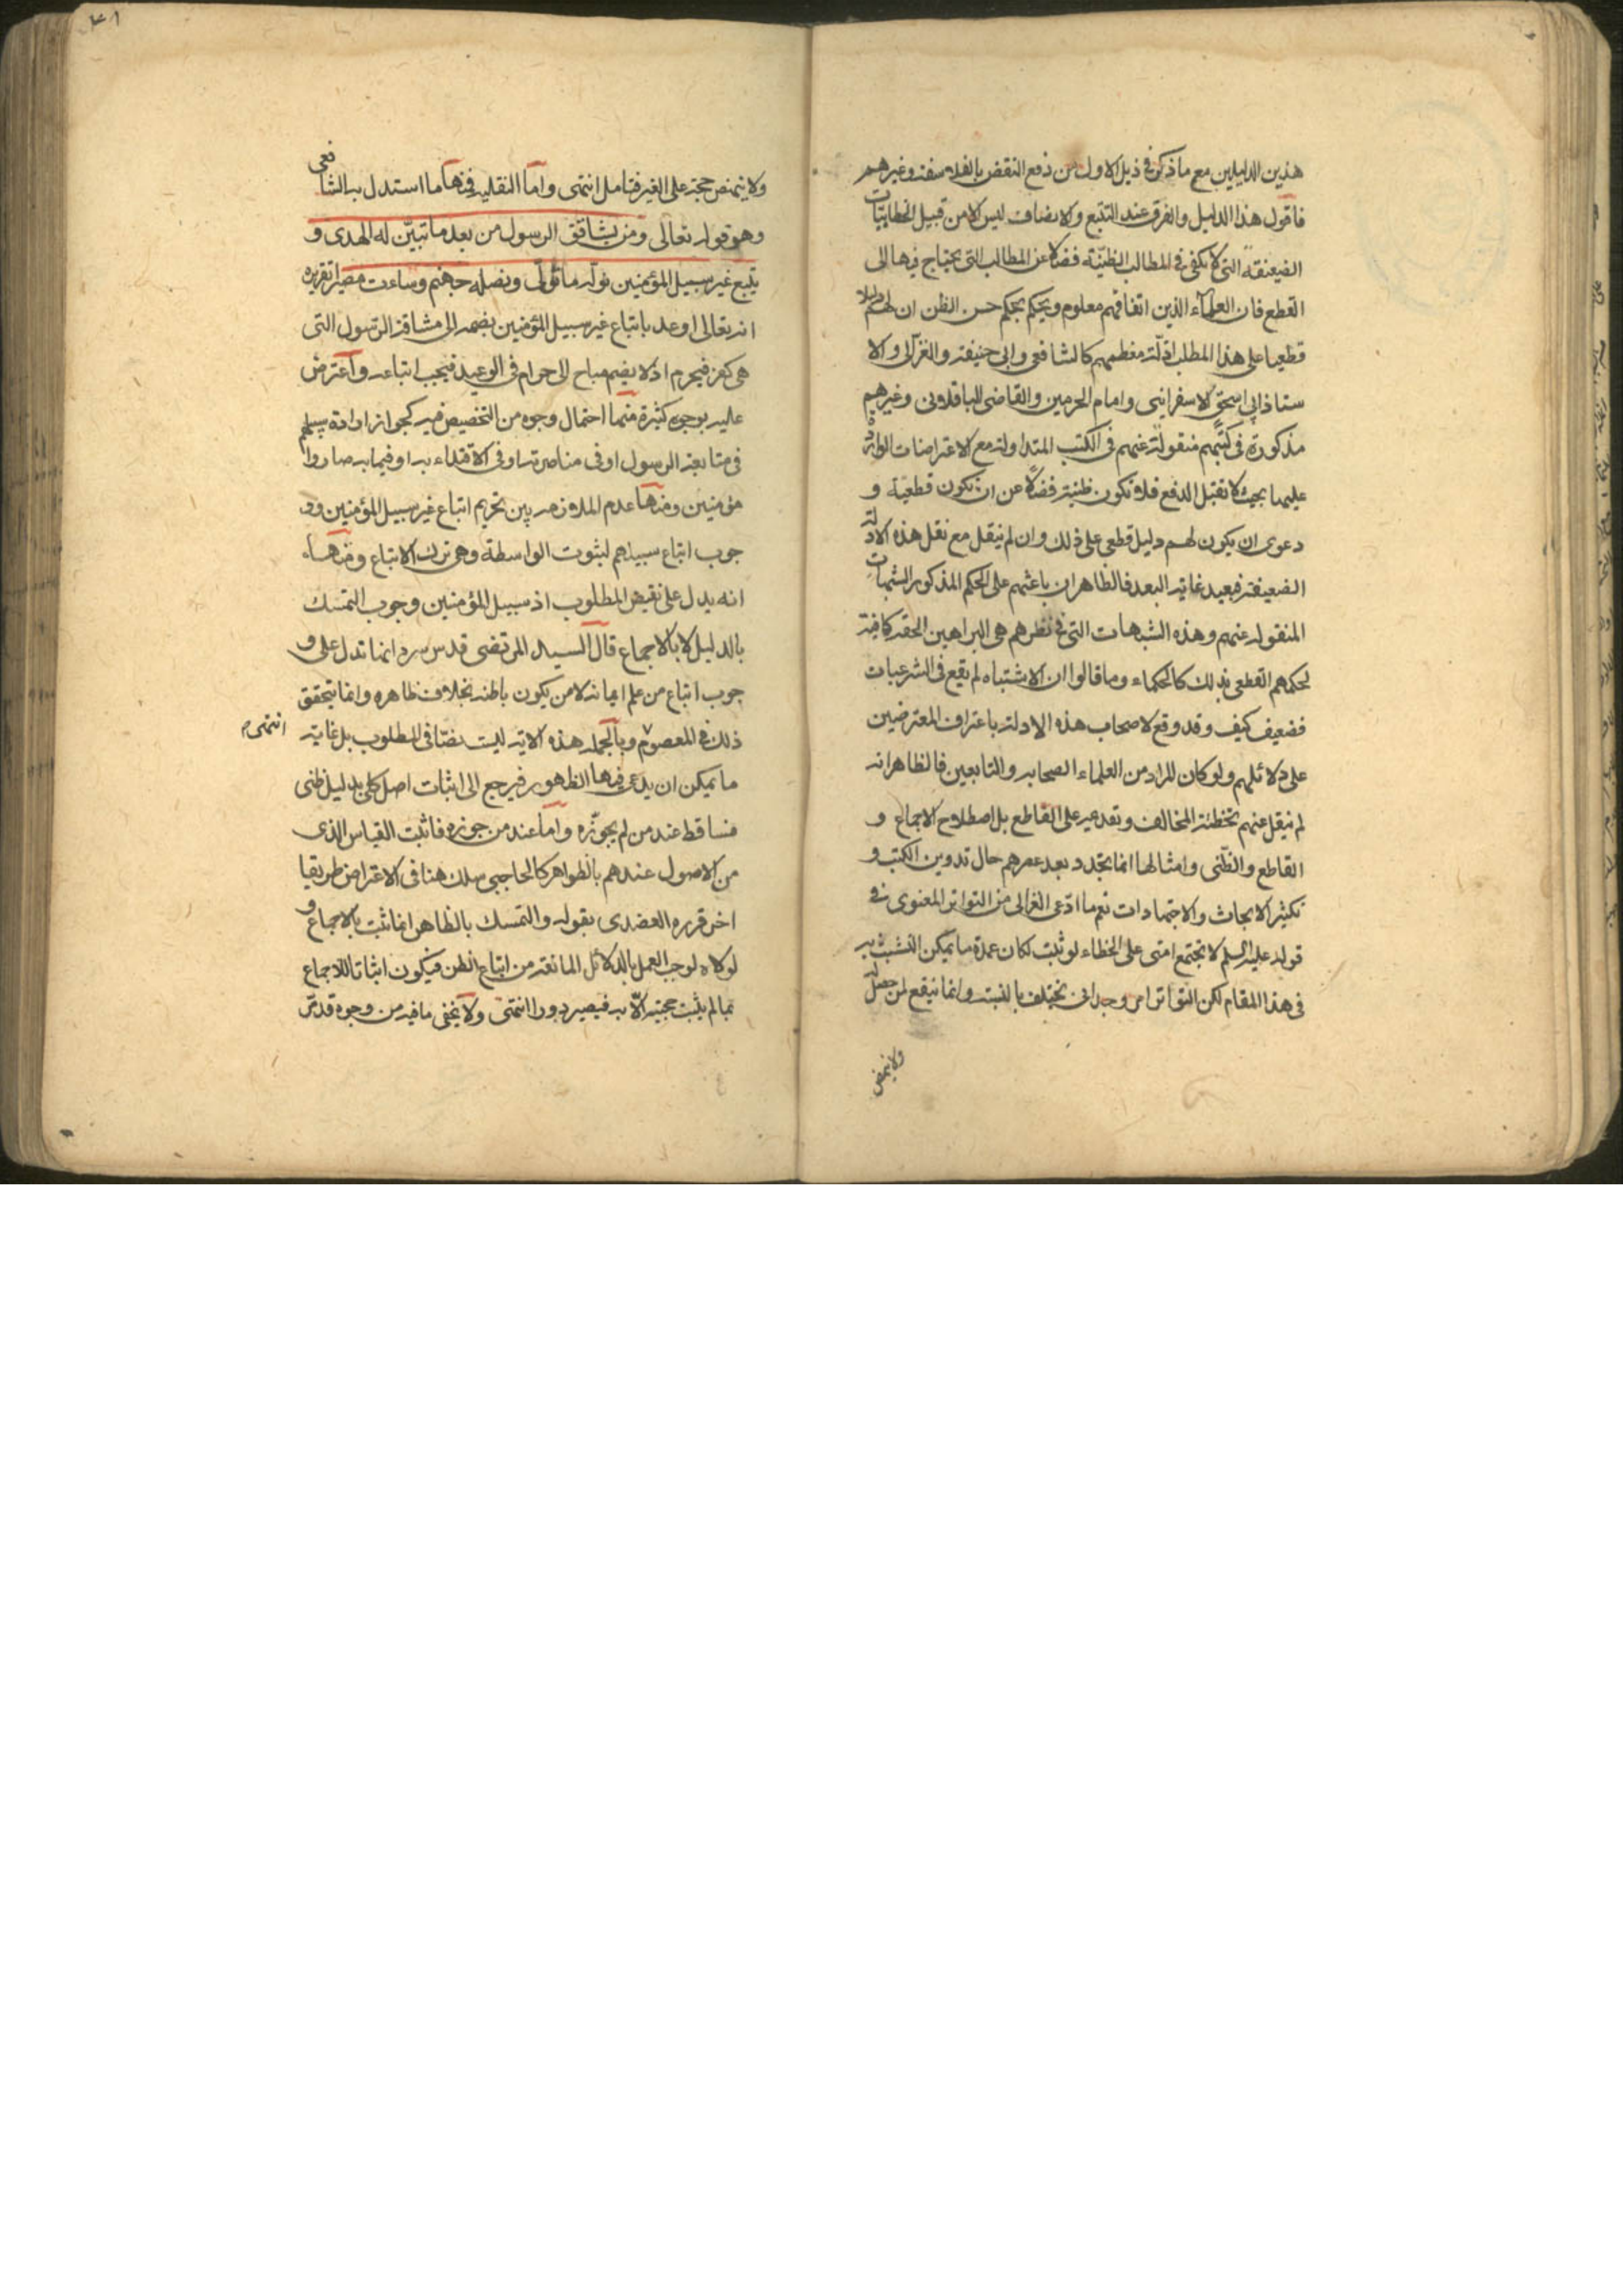 هذين الدليلين مع ما ذكر فى ذيل الاول من دفع النقض بالفلاسفة وغيرهم
فاقول هذا الدليل والفرق عند التتبع والانصاف ليس الا من قبيل الخطابيّات
الضعيفة التى لا تكفى فى المطالب الظنيّة فضلا عن المطالب التى يحتاج فيها الى
القطع فان العلماء الذين اتفاقهم معلوم ويحكم بحكم حسن الظن ان لهم دليلا
قطعيا على هذا المطلب ادلّة معظمهم كالشافعى وابى حنيفة والغزالى والا
ستاذ ابى اسحق الاسفراينى وامام الحرمين والقاضى الباقلانى وغيرهم
مذكورة فى كتبهم منقولة عنهم فى الكتب المتداولة مع الاعتراضات الواردة
عليها بحيث لا تقبل الدفع فلا تكون ظنية فضلا عن ان تكون قطعية و
دعوى ان يكون لهم دليل قطعى على ذلك وان لم ينقل مع نقل هذه الادلة
الضعيفة فبعيد غاية البعد فالظاهر ان باعثهم على الحكم المذكور الشبهات
المنقولة عنهم وهذه الشبهات التى فى نظرهم هى البراهين الحقة كافية
لحكمهم القطعى بذلك كالحكماء وما قالوا ان الاشتباه لم يقع فى الشرعيات
فضعيف كيف وقد وقع لاصحاب هذه الادلة باعتراف المعترضين
على دلائلهم ولو كان المراد من العلماء الصحابه والتابعين فالظاهر انه
لم ينقل عنهم تخطئة المخالف وتقديمه على القاطع بل اصطلاح الاجماع و
القاطع والظنى وامثالها انما تجدد بعد عصرهم حال تدوين الكتب و
تكثير الابحاث والاجتهادات نعم ما ادّعى الغزالى من التواتر المعنوى فى
قوله عليه السلم لا تجتمع امتى على الخطاء لو ثبت لكان عمدة ما يمكن التشبث به
فى هذا المقام لكن التواتر امر وجدانى يختلف بالنسبة وانما ينفع لمن حصل له
ولا ينهض
ولا ينهض حجة على الغير فتامل انتهى واما النقليه فمنها ما استدل به الشافعى
وهو قوله تعالى ومن يشاقق الرسول من بعد ما تبيّن له الهدى و
يتبع غير سبيل المؤمنين نولّه ما تولّى ونصله جهنم وساءت مصيرا تقريره
انه تعالى اوعد باتباع غير سبيل المؤمنين بضمه الى مشاقة الرسول التى
هى كفر فيحرم اذ لا يضم مباح الى حرام فى الوعيد فيجب اتباعه واعترض
عليه بوجوه كثيرة منها احتمال وجوه من التخصيص فيه كجواز ارادة سبيلهم
فى متابعة الرسول او فى مناصرته او فى الاقتداء به او فيما به صاروا
مؤمنين ومنها عدم الملازمة بين تحريم اتباع غير سبيل المؤمنين وو
جوب اتباع سبيلهم لثبوت الواسطة وهى ترك الاتباع ومنها
انه يدل على نقيض المطلوب اذ سبيل المؤمنين وجوب التمسك
بالدليل لا بالاجماع قال السيد المرتضى قدس سره انما تدل على و
جوب اتباع من علم ايمانه لا من يكون باطنه بخلاف ظاهره وانما يتحقق
ذلك فى المعصوم وبالجمله هذه الاية ليست نصّا فى المطلوب بل غاية انتهى م
ما يمكن ان يدعى فيها الظهور فيرجع الى اثبات اصل كلى بدليل ظنى
فساقط عند من لم يجوّزه واما عند من جوزه فاثبت القياس الذى
من الاصول عندهم بالظواهر كالحاجبى سلك هنا فى الاعتراض طريقا
اخر قرره العضدى بقوله والتمسك بالظاهر انما ثبت بالاجماع و
لولاه لوجب العمل بالدلائل المانعة من اتباع الظن فيكون اثباتا للاجماع
بما لم يثبت حجيته الّا به فيصير دورا انتهى ولا يخفى ما فيه من وجوه قدتر